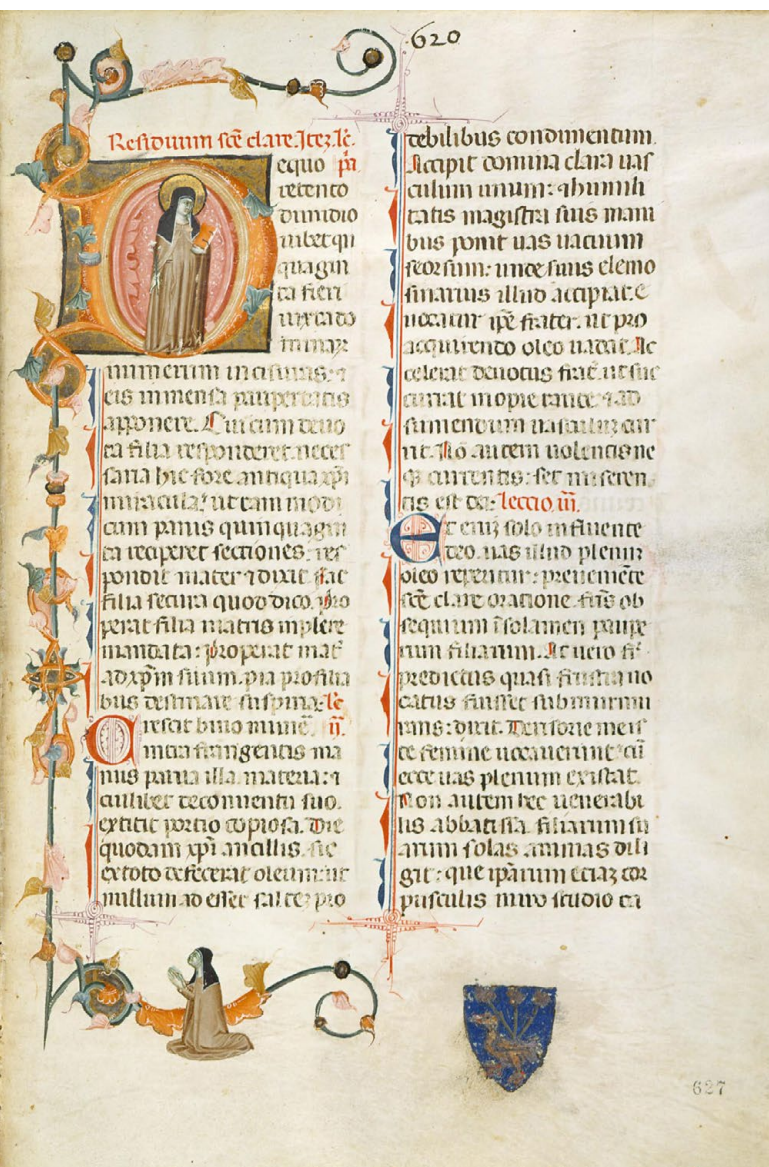 620
Residuum sce clare Itez. le.
equo pa
retento
dimidio
iubet qn
quagin
ta fieri
iuxta do
minaꝝ
numerum incisuras: ⁊
eis in mensa paupertatis
apponere. Cui cum deuo
ta filia responderet neces
saria hic fore antiqua xpi
miracula: ut tam modi
cum panis quinquagin
ta reciperet sectiones: res
pondit mater ⁊ dixit. Fac
filia secura quod dico. Pro
perat filia matris implere
mandata: properat mat̃
ad xp̃m suum. pia pro filia
bus destinare suspiria. le.
Crescit diuino munẽ ii.
inter frangentis ma
nus parua illa materia: ⁊
cuilibet de conuentu suo.
extitit portio copiosa. Die
quodam xp̃i ancillis. sic
ex toto defecerat oleum: ut
nullum adesset saltez pro
debilibus condimentum.
Accipit domina clara uas
culum unum: ⁊ humili
tatis magistra suis mani
bus ponit uas uacuum
seorsum: unde suus elemo
sinarius illud accipiat. E
uocatur ip̃e frater. ut pro
acquirendo oleo uadat. Ac
celerat deuotus frat̃. ut suc
currat inopie tante. ⁊ ad
sumendum uasculum cur
rit. No autem uolentis ne
q; currentis: set miseren
tis est dei. Lectio. iii.
Et eniz solo influente
deo. uas illud plenum
oleo reperitur: preueniẽte
sce clare oratione. fr̃is ob
sequium ĩ solamen paupe
rum filiarum. At uero fr̃
predictus quasi frustra uo
catus fuisset submurmu
rans: dixit. Derisorie me is̃
te femine uocauerunt: cũ
ecce uas plenum existat.
Non autem hec uenerabi
lis abbatissa. filiarum su
arum solas animas dili
git: que ip̃arum eciaz cor
pusculis miro studio ca
627